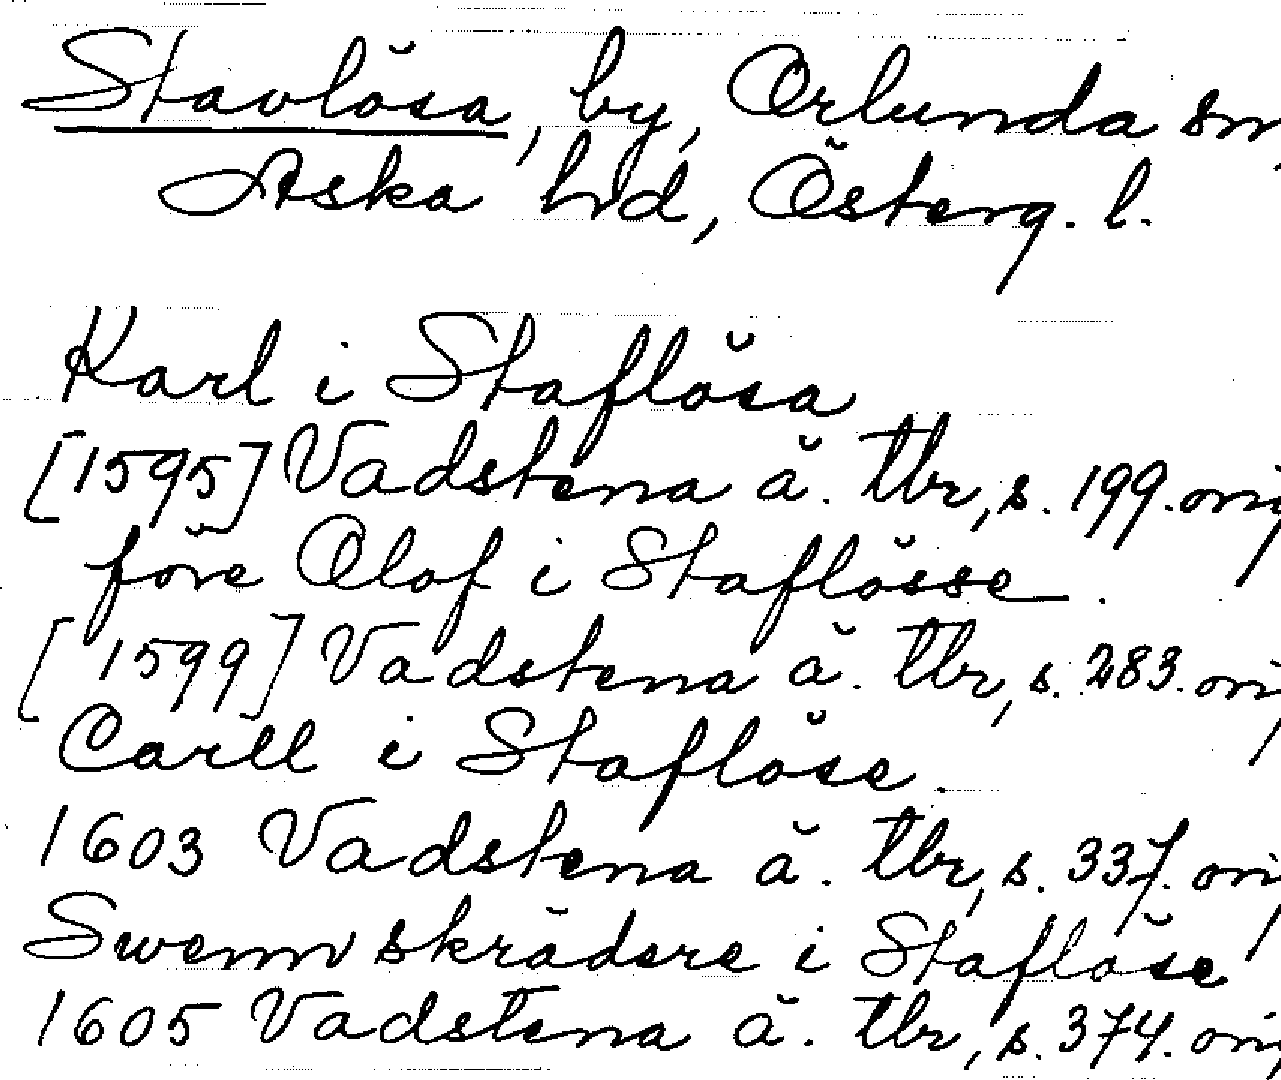 Stavlösa, by, Orlunda sn,
Aska hd, Österg. l.
Karl i Staflösa
[1595] Vadstena ä. tbr, s. 199. orig
före Olof i Staflösse.
[1599] Vadstena ä. tbr, s. 283. orig
Carll i Staflöse.
1603 Vadstena ä. tbr, s. 337. orig
Swenn skrädere i Staflöse
1605 Vadstena ä. tbr, s. 374. orig